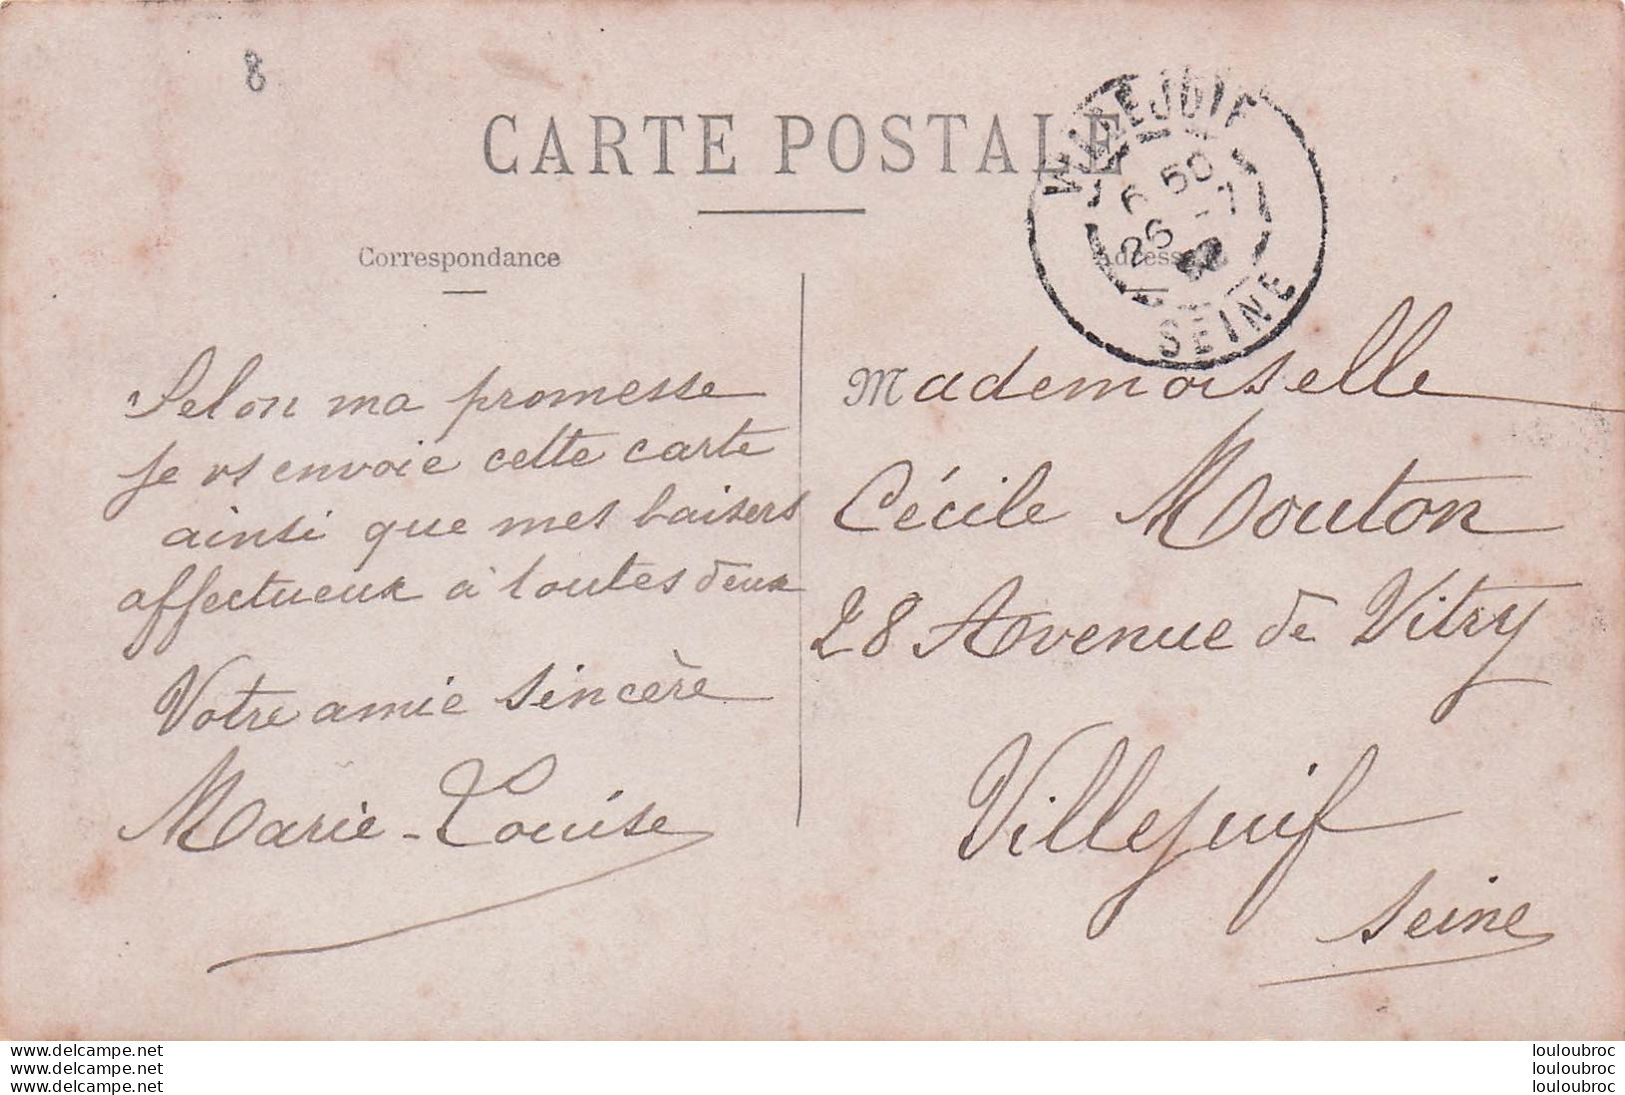 8
CARTE POSTALE
VILLEJUIF
6 50
26 - 7
SEINE
Correspondance
Adresse
Selon ma promesse
je vs envoie cette carte
ainsi que mes baisers
affectueux à toutes deux
Votre amie sincère
Marie-Louise
Mademoiselle
Cécile Mouton
28 Avenue de Vitry
Villejuif
Seine
www.delcampe.net
www.delcampe.net
www.delcampe.net
louloubroc
louloubroc
louloubroc